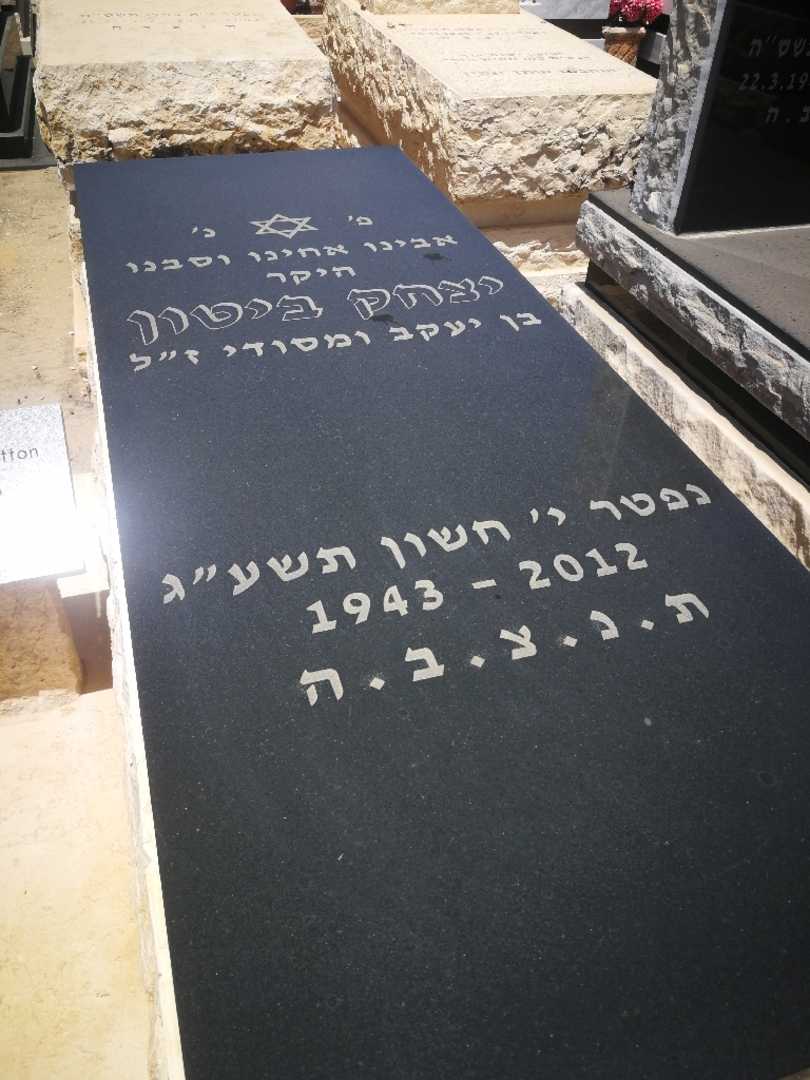 פ׳ נ׳
אבינו אחינו וסבנו
היקר
יצחק ביטון
בן יעקב ומסודי ז״ל
נפטר י׳ חשון תשע״ג
1943 - 2012
ת . נ . צ . ב . ה
tton
22.3.19